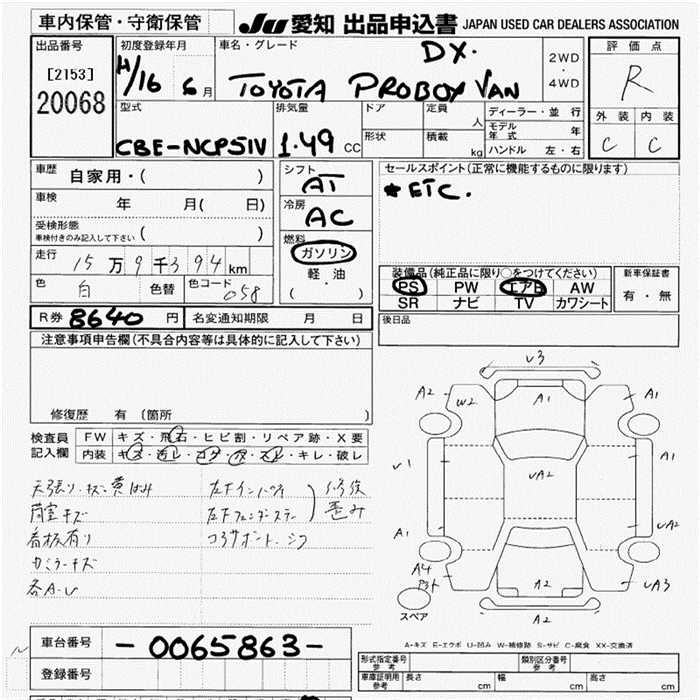 車内保管・守衛保管
JU 愛知 出品申込書 JAPAN USED CAR DEALERS ASSOCIATION
出品番号
[2153]
20068
初度登録年月
H/16 6月
車名・グレード
DX.
TOYOTA PROBOX VAN
2WD
・
4WD
評価点
R
外装 内装
C C
型式
CBE-NCP51V
排気量
1.49 CC
ドア
形状
定員
人
積載
kg
ディーラー・並行
モデル年式 年
ハンドル 左・右
車歴
自家用・( )
車検
年 月( 日)
受検形態
車検付きのみ記入して下さい ( )
走行
15万9千394km
色
白
色替
色コード
058
シフト
AT
冷房
AC
燃料
ガソリン
軽油
( ・ )
セールスポイント(正常に機能するものに限ります)
*ETC.
装備品(純正品に限り○をつけてください)
PS PW エアB AW
SR ナビ TV カワシート
新車保証書
有・無
R券 8640 円
名変通知期限 月 日
後日品
注意事項申告欄(不具合内容等は具体的に記入して下さい)
修復歴 有 (箇所 )
検査員
記入欄
FW キズ・飛石・ヒビ割・リペア跡・X要
内装 キズ・汚レ・コゲ・穴・スレ・キレ・破レ
天張り・キズ・黄ばみ
荷室キズ
看板有り
カミラーキズ
各A・U
左フインパネ
左フフェンダーステー
コラサポート・シワ
修復
歪み
V3
A2
W2
A1
A1
V1
UA2
A1
A1
UA2
A4
A2
UA3
A2
スペア
A-キズ E-エクボ U-凹み W-補修跡 S-サビ C-腐食 XX-交換済
車台番号
-0065863-
登録番号
形式指定番号
参考
類別区分番号
参考
車庫証明用
参考
長さ cm
幅 cm
高さ cm